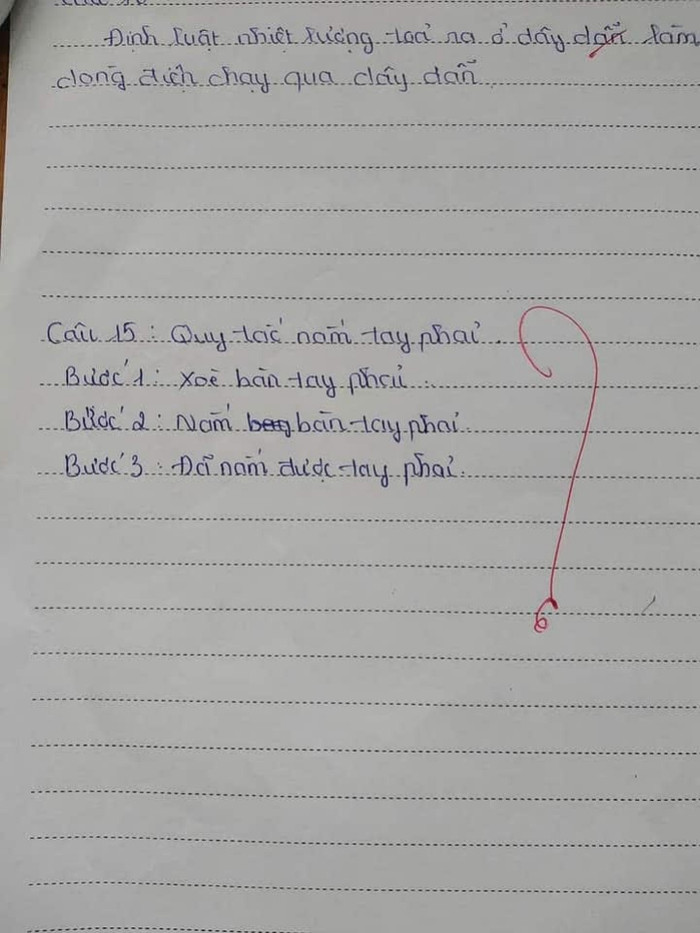 Định luật nhiệt lượng toả ra ở dây dẫn làm
dòng điện chạy qua dây dẫn
Câu 15: Quy tắc nắm tay phải
Bước 1: Xoè bàn tay phải
Bước 2: Nắm bàn tay phải
Bước 3: Đã nắm được tay phải.